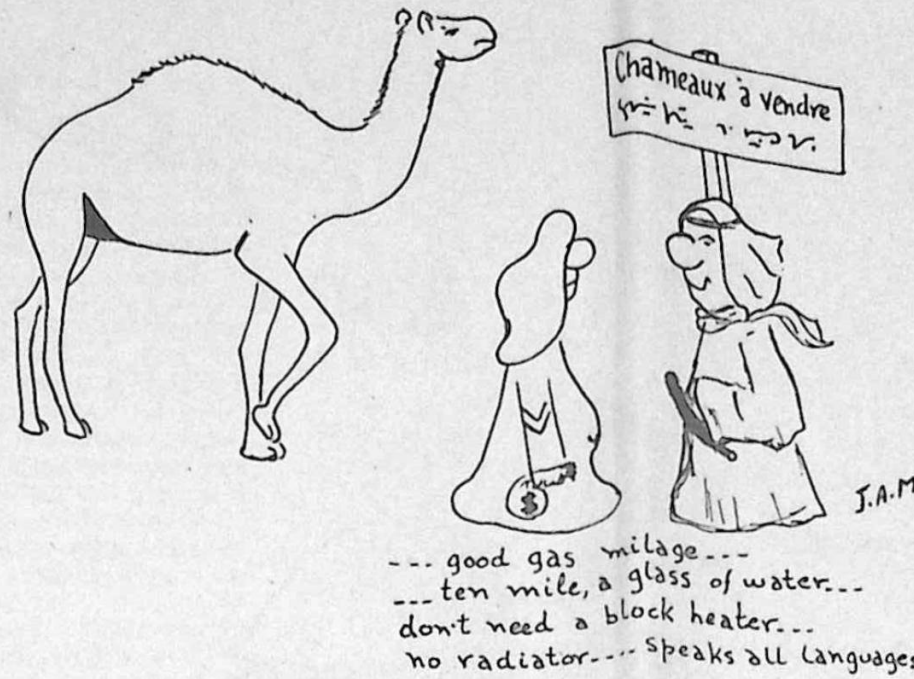 Chameaux à vendre
$
J.A.M
--- good gas milage ---
--- ten mile, a glass of water---
don't need a block heater---
no radiator---- speaks all languages